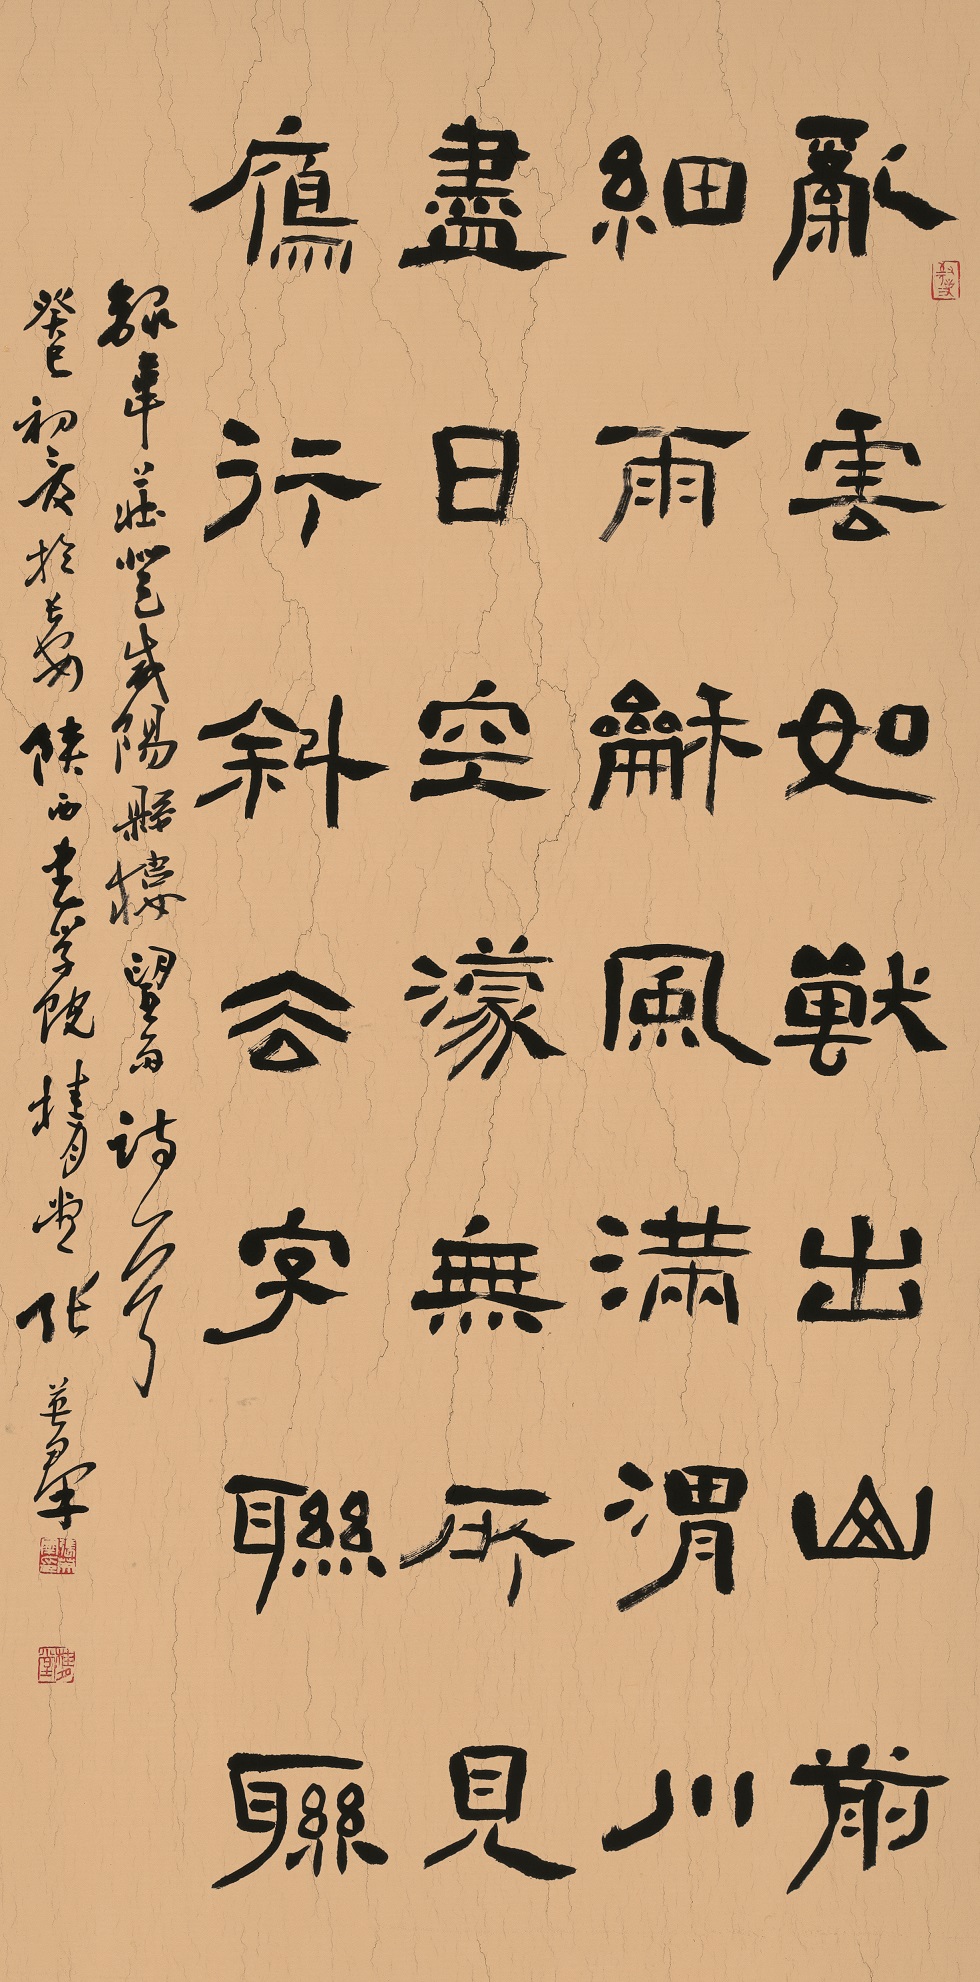 亂雲如獸出山前
細雨龢風滿渭川
盡日空濛無所見
鴈行斜去字聯聯
録韋莊登咸陽縣樓望雨詩一首
癸巳初夏於長安陝西書學院精膏堂張英羣